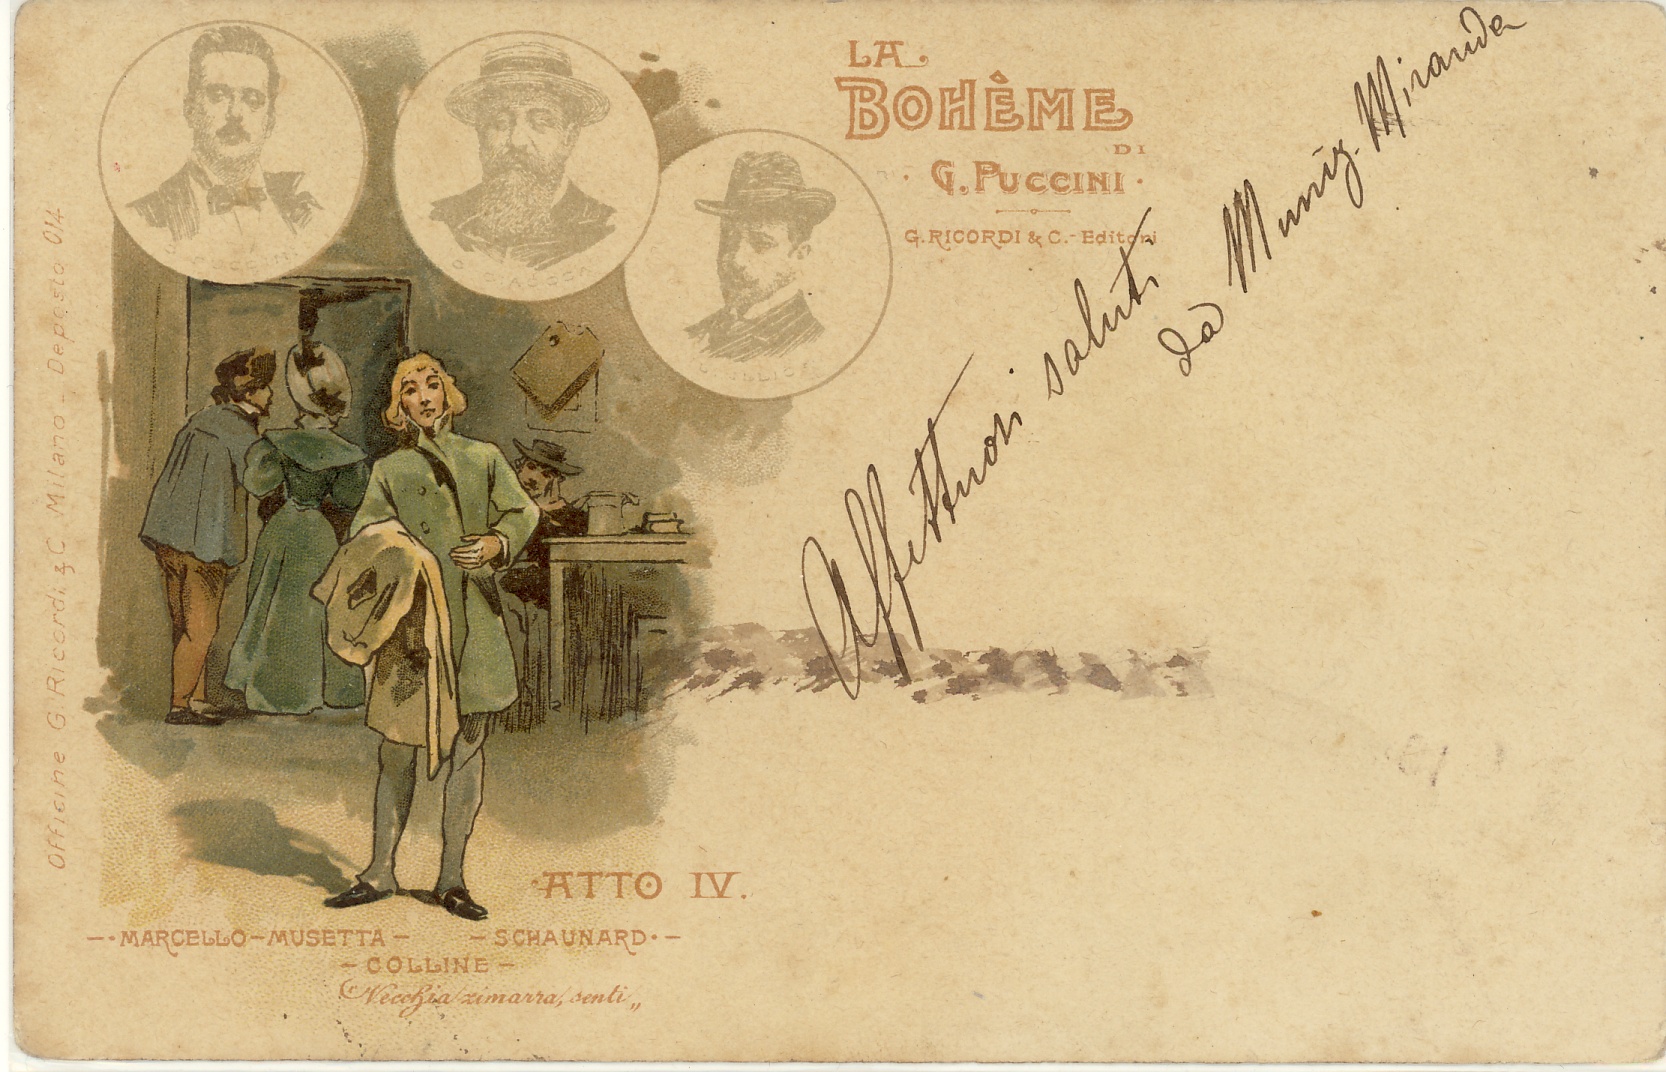 LA
BOHÊME
DI
G. PUCCINI
G. RICORDI & C. - Editori
Affettuosi saluti
da Muniz Miranda
G. PUCCINI
G. GIACOSA
L. ILLICA
Officine G. Ricordi & C. Milano - Deposto 014
ATTO IV.
MARCELLO - MUSETTA - - SCHAUNARD -
- COLLINE -
"Vecchia zimarra, senti„